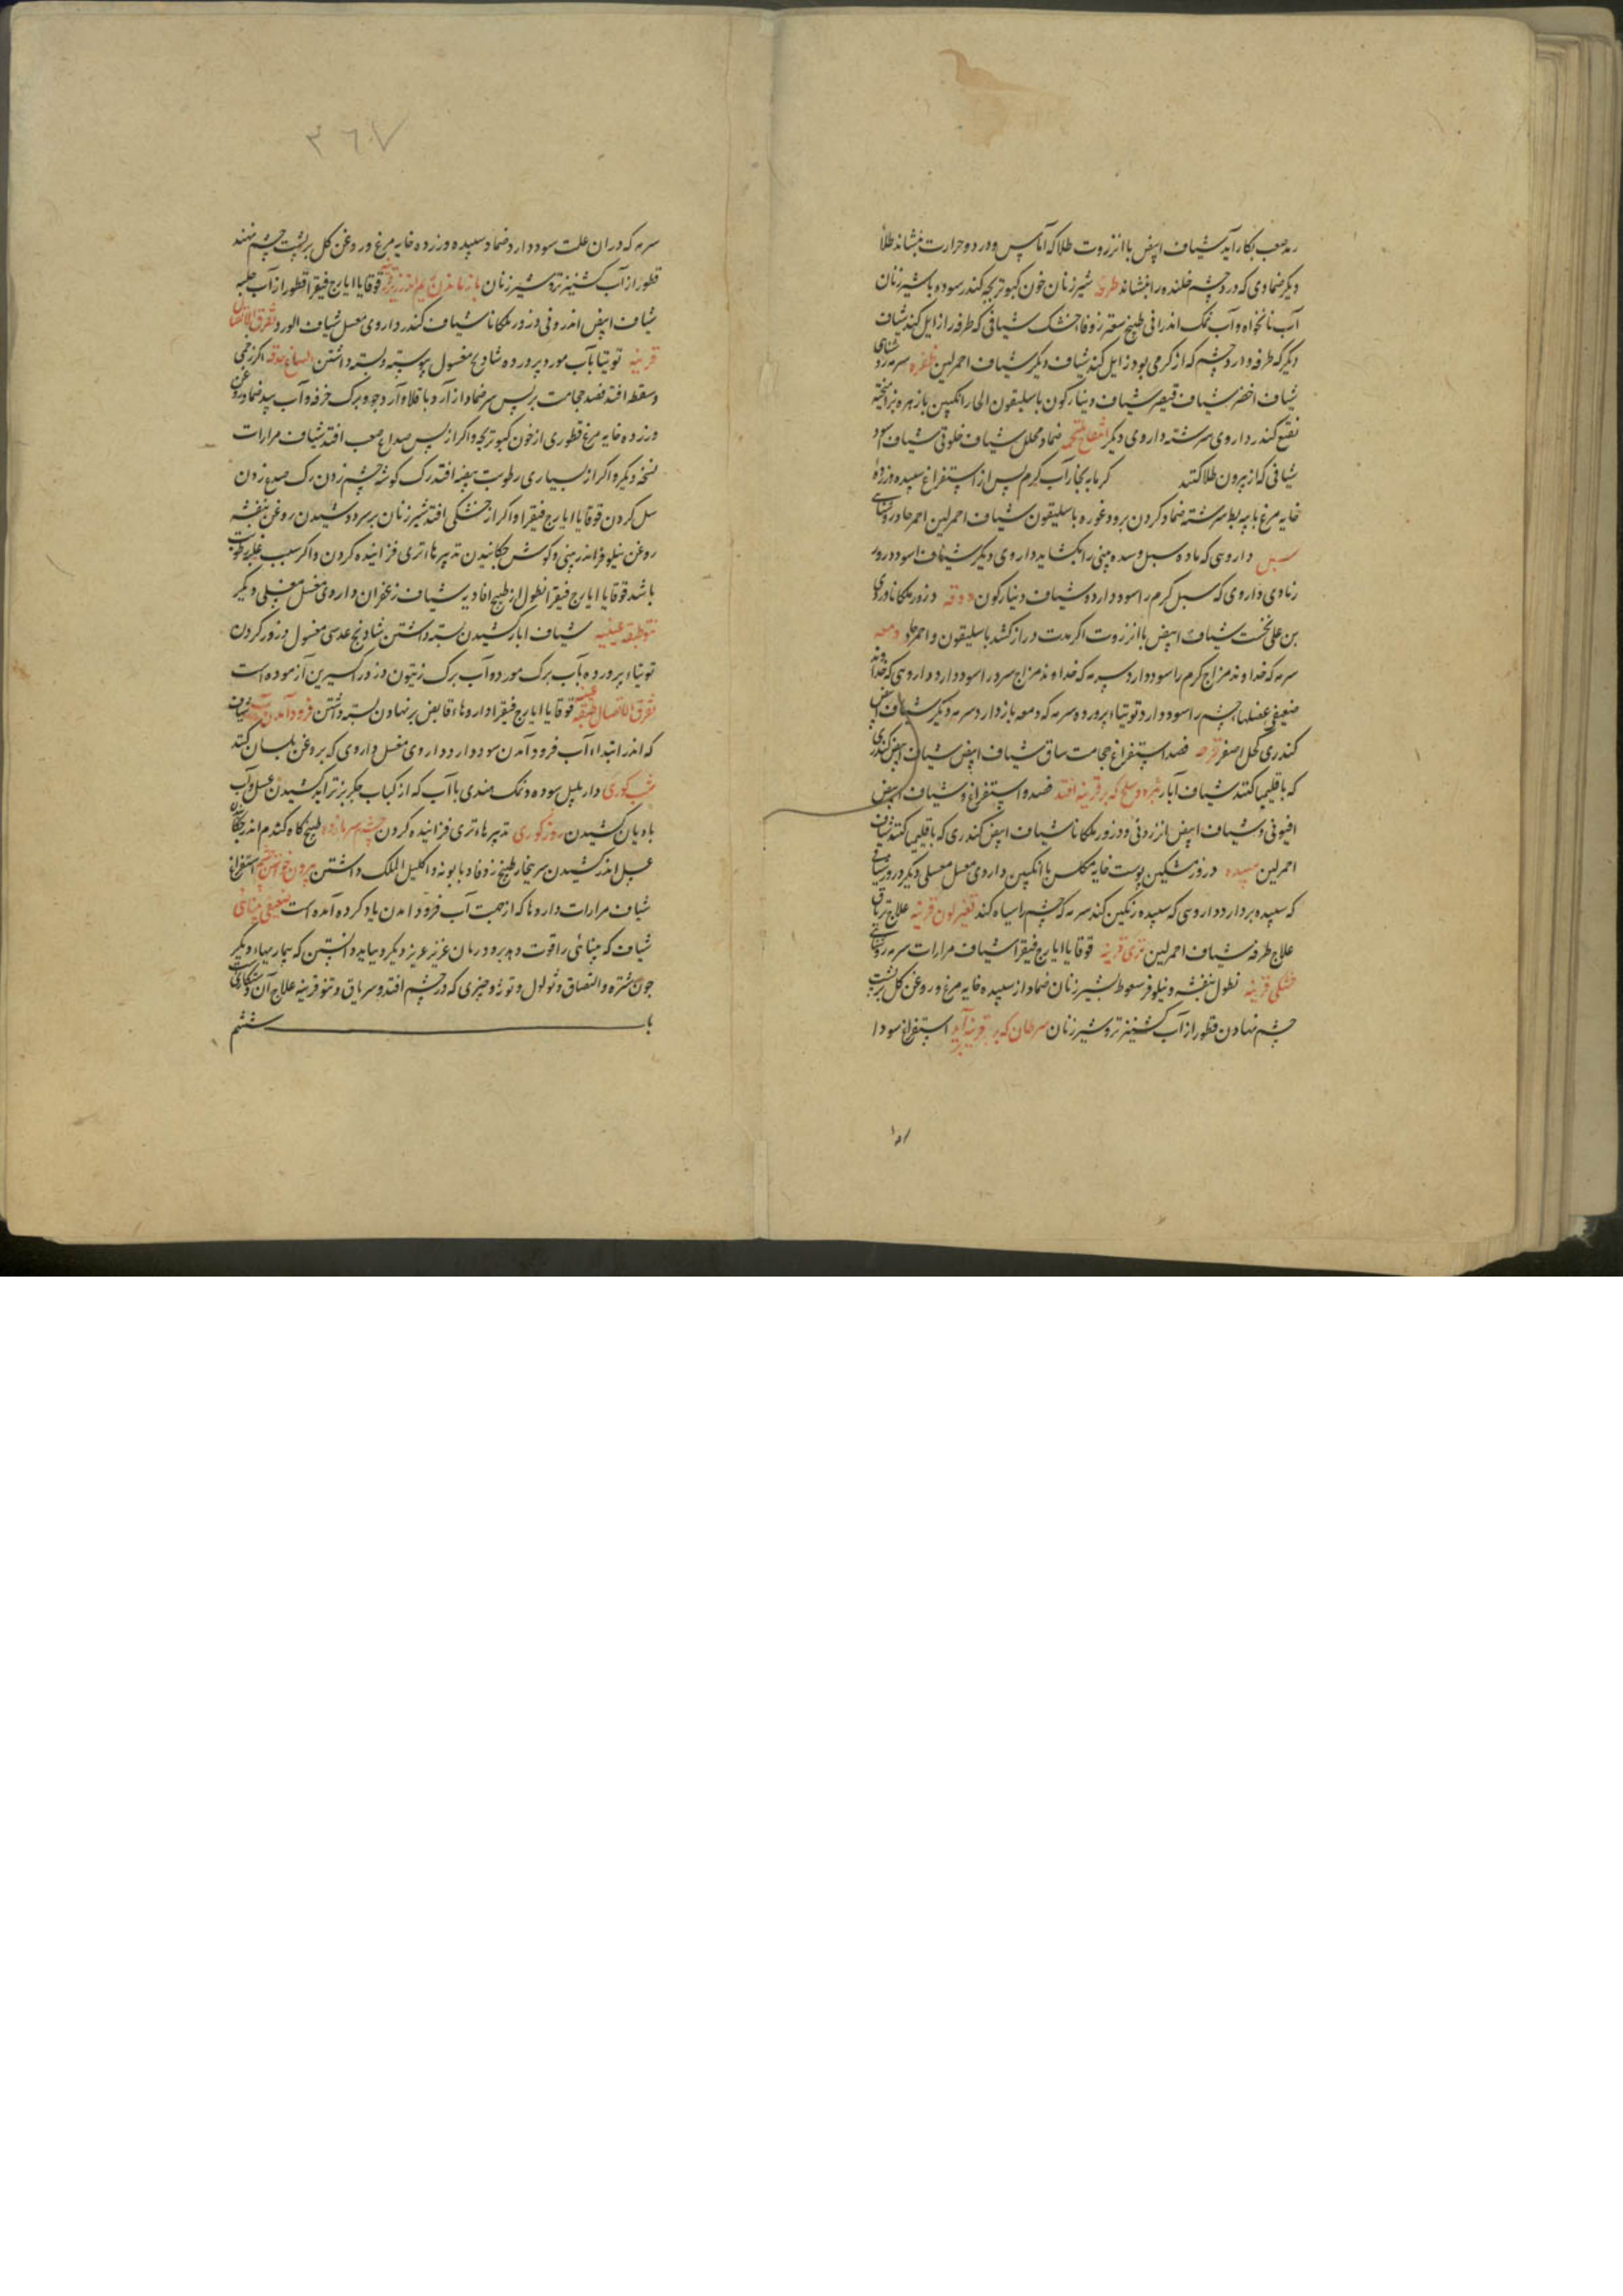 رمد صعب بکار آید شیاف ابیض با انزروت طلا که آماس و درد و حرارت بنشاند طلأ
دیکر ضمادی که درد چشم خلنده را بنشاند طرفه شیر زنان خون کبوتر بچه کندر سوده با شیر زنان
آب نانخواه و آب نمک اندرانی طبیخ سعتر زوفا خشک شیافی که طرفه را زایل کند شیاف
دیکر که طرفه و درد چشم که از کرمی بود زایل کند شیاف دیکر شیاف احمر لین ظفره سرمه روشنای
شیاف اخضر شیاف قیصر شیاف دینارکون باسلیقون الحار انکبین با زهره بز امیخته
نقیع کندر داروی سرشته داروی دیکر انتفاخ ملتحمه ضماد محلل شیاف خلوقی شیاف اسود
شیافی که از بیرون طلا کنند کرمابه بخار آب کرم پس از استفراغ سپیده و زرده
خایه مرغ با پیه بط سرشته ضماد کردن برود غوره باسلیقون شیاف احمر لین احمر حاد روشنای
سبل داروی که ماده سبل و سده بینی را بکشاید داروی دیکر شیاف اسود درور
زنادی داروی که سبل کرم را سود دارد و شیاف دینارکون ودقه درور ملکانا ذرور
بن علی نخست شیاف ابیض با انزروت اکر مدت دراز کشد باسلیقون و احمر حاد دمعه
سرمه که خداوند مزاج کرم را سود دارد سرمه که خداوند مزاج سرد را سود دارد داروی که خداوند
ضعیفی عضلهاء چشم را سود دارد توتیاء پرورده سرمه که دمعه باز دارد سرمه دیکر شیاف ابیض
کندری کحل اصفر قرحه فصد استفراغ حجامت ساق شیاف ابیض شیاف ابیض کندری
که با قلیمیا کنند شیاف آبار بثره و سلخ که بر قرنیه افتد فصد و استفراغ و شیاف ابیض
افیونی و شیاف ابیض انزروتی و درور ملکانا شیاف ابیض کندری که با قلیمیا کنند شیاف
احمر لین سپیده درور مشکین پوست خایه مکلس با انکبین داروی معسل معسلی دیکر درور
که سپیده بردارد داروی که سپیده رنکین کند سرمه که چشم را سیاه کند تغیر لون قرنیه علاج یرقان
علاج طرفه شیاف احمر لین تری قرنیه قوقایا ایارج فیقرا شیاف مرارات سرمه روشنای
خشکی قرنیه نطول بنفشه و نیلوفر سعوط بشیر زنان ضماد از سپیده خایه مرغ و روغن کل بر پشت
چشم نهادن قطور از آب کشنیز تر و شیر زنان سرطان که بر قرنیه آید استفراغ سودا
۳٦٧
سرمه که در ان علت سود دارد ضماد سپیده و زرده خایه مرغ و روغن کل بر پشت چشم نهند
قطور از آب کشنیز تر و شیر زنان باز ماندن ریم اندر زیر قرنیه قوقایا ایارج فیقرا قطور از آب حلبه
شیاف ابیض اندرونی درور ملکانا شیاف کندر داروی معسل شیاف الورد تفرق الاتصال
قرنیه توتیا بآب مورد پرورده شادنج مغسول پیوسته بسته داشتن اتساع حدقه اکر زخمی
و سقطه افتد فصد حجامت بر پس سر ضماد از آرد باقلا و آرد جو و برک خرفه و آب بید ضماد روغن
و زرده خایه مرغ قطوری از خون کبوتر بچه و اکر از پس صداع صعب افتد شیاف مرارات
نسخه دیکر و اکر از بسیاری رطوبت بیضه افتد رک کوشه چشم زدن رک صدغ زدن
سل کردن قوقایا ایارج فیقرا و اکر از خشکی افتد شیر زنان بر سر دوشیدن روغن بنفشه
روغن نیلوفر اندر بینی و کوش چکانیدن تدبیرهاء تری فزاینده کردن و اکر سبب غلبه رطوبت
باشد قوقایا ایارج فیقرا نطول از طبیخ افاویه شیاف زعفران داروی معسل معسلی دیکر
نتو طبقه عنبیه شیاف ابار کشیدن بسته داشتن شادنج عدسی مغسول درور کردن
توتیاء پرورده بآب برک مورد و آب برک زیتون درور اکسیرین آزموده است
تفرق الاتصال طبقه عنبیه قوقایا ایارج فیقرا داروهاء قابض بر نهادن بسته داشتن فرود آمدن آب شیاف
که اندر ابتداء آب فرود آمدن سود دارد داروی معسل داروی که بروغن بلسان کنند
شب کوری دار پلپل سوده و نمک هندی با آب که از کباب جکر بز تراید کشیدن عسل و آب
بادیان کشیدن روز کوری تدبیرهاء تری فزاینده کردن چشم سرما زده طبیخ کاه کندم اندر چکانیدن
عسل اندر کشیدن سر بخار طبیخ زوفا و بابونه و اکلیل الملک داشتن بیرون خواستن چشم استفراغ
شیاف مرارات داروها که از جهت آب فرود امدن یاد کرده آمده است ضعیفی بینائی
شیاف که بینائی را قوت دهد برود رمان عزیز عزیز دیکر و بباید دانستن که بیماریهاء دیکر
چون شتره و التصاق و ثولول و توثه و چیزی که در چشم افتد و سریاق و نتو قرنیه علاج آن دستکاری است
باب ششم